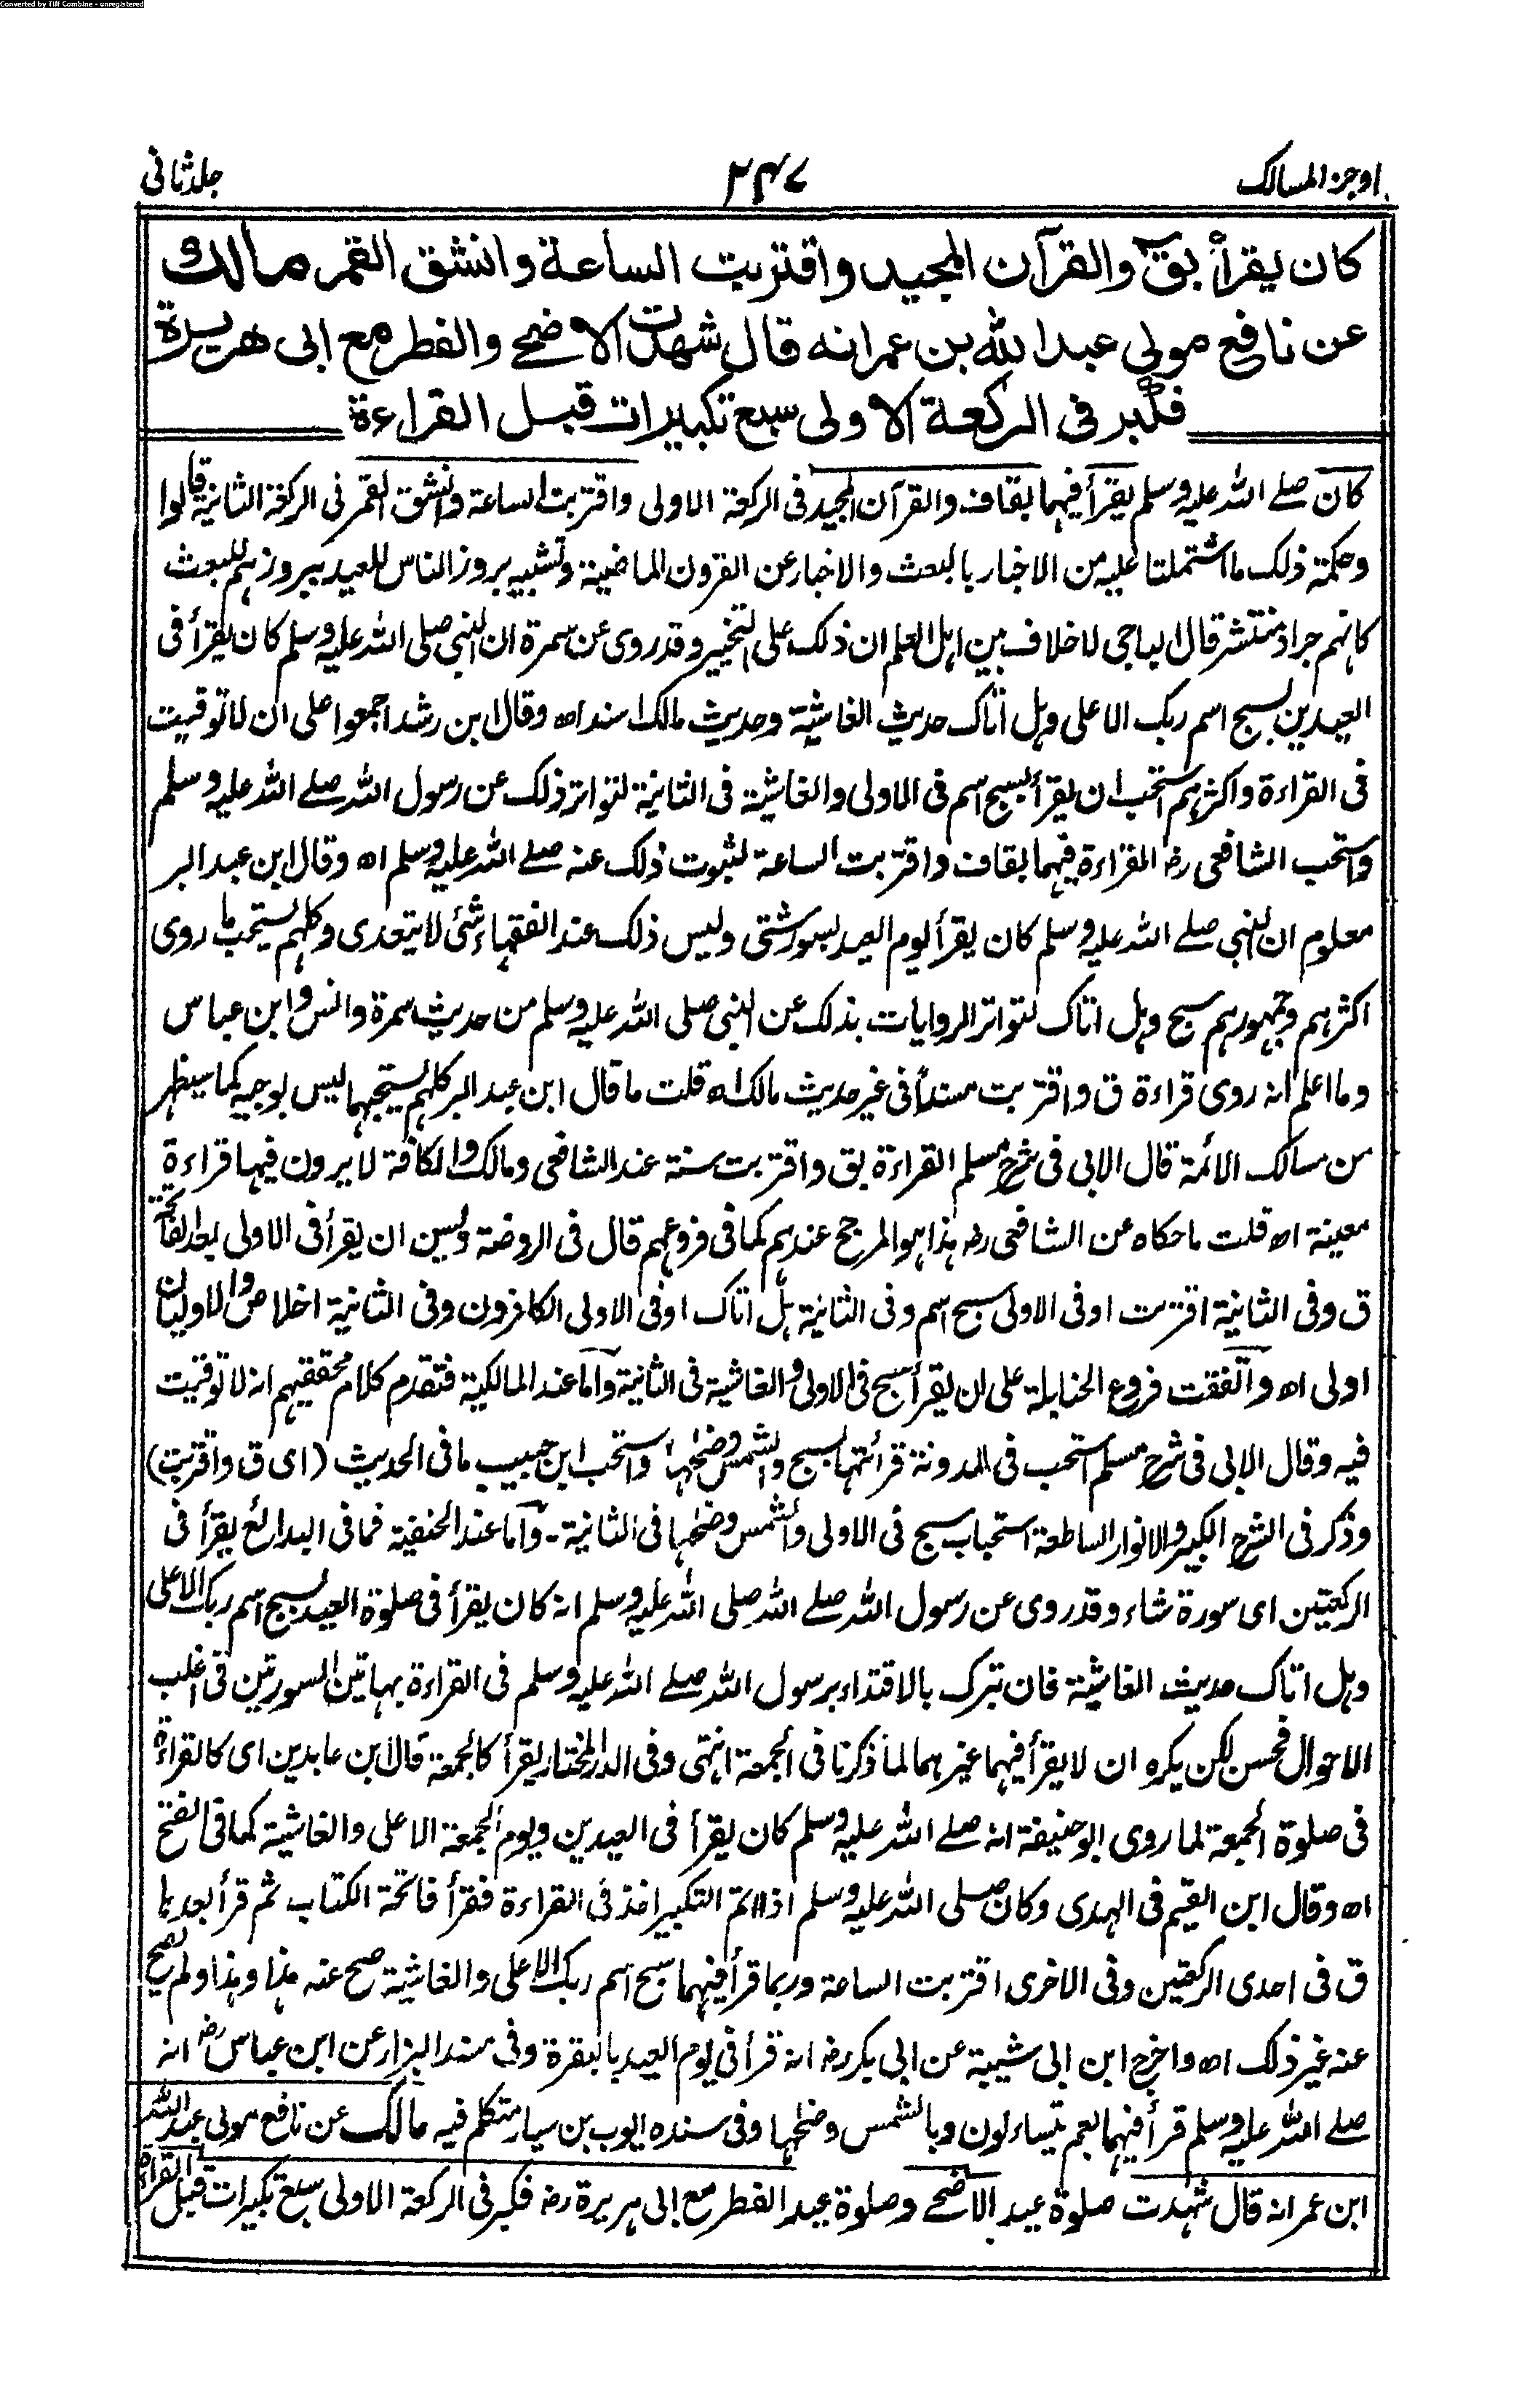 Converted by Tiff Combine - unregistered
اوجز المسالک
۲۴۷
جلد ثانی
كان يقرأ بق والقرآن المجيد واقتربت الساعة وانشق القمر مالك
عن نافع مولى عبد الله بن عمر انه قال شهدت الاضحے والفطر مع ابی هريرة
فكبر فی الركعة الاولی سبع تكبيرات قبل القراءة
كان صلے الله عليه وسلم يقرأ فيهما بقاف والقرآن المجيد فی الركعة الاولی واقتربت الساعة وانشق القمر فی الركعة الثانية قالوا
وحكمة ذلك ما اشتملتا عليه من الاخبار بالبعث والاخبار عن القرون الماضية وتشبيه بروز الناس للعيد ببروزهم للبعث
كانهم جراد منتشر قال الباجی لا خلاف بين اهل العلم ان ذلك على التخيير وقد روى عن سمرة ان النبی صلى الله عليه وسلم كان يقرأ فی
العيدين بسبح اسم ربك الاعلى وهل اتاك حديث الغاشية وحديث مالك اسند اه وقال ابن رشد اجمعوا على ان لا توقيت
فی القراءة واكثرهم استحب ان يقرأ بسبح اسم فی الاولی والغاشية فی الثانية لتواتر ذلك عن رسول الله صلے الله عليه وسلم
واستحب الشافعی رض القراءة فيهما بقاف واقتربت الساعة لثبوت ذلك عنه صلے الله عليه وسلم اه وقال ابن عبد البر
معلوم ان النبی صلے الله عليه وسلم كان يقرأ يوم العيد بسور شتى وليس ذلك عند الفقهاء شئ لا يتعدى وكلهم يستحب ما روى
اكثرهم وجمهورهم سبح وهل اتاك لتواتر الروايات بذلك عن النبی صلى الله عليه وسلم من حديث سمرة وانس وابن عباس
وما اعلم انه روى قراءة ق واقتربت مسنداً فی غير حديث مالك اه قلت ما قال ابن عبد البر كلهم يستحبها ليس بوجيه كما سيظهر
من مسالك الائمة قال الابی فی شرح مسلم القراءة بق واقتربت سنة عند الشافعی ومالك والكافة لا يرون فيها قراءة
معينة اه قلت ما حكاه عن الشافعی رض هذا هو المرجح عندهم كما فی فروعهم قال فی الروضة ويسن ان يقرأ فی الاولی بعد الفاتحة
ق وفی الثانية اقتربت او فی الاولی سبح اسم وفی الثانية هل اتاك او فی الاولی الكافرون وفی الثانية اخلاص والاوليان
اولى اه واتفقت فروع الحنابلة على ان يقرأ سبح فی الاولی والغاشية فی الثانية واما عند المالكية فتقدم كلام محققيهم انه لا توقيت
فيه وقال الابی فی شرح مسلم استحب فی المدونة قرأتها بسبح والشمس وضحٰها واستحب ابن حبيب ما فی الحديث (ای ق واقتربت)
وذكر فی الشرح الكبير والانوار الساطعة استحباب سبح فی الاولی والشمس وضحٰها فی الثانية - واما عند الحنفية فما فی البدائع يقرأ فی
الركعتين ای سورة شاء وقد روى عن رسول الله صلے الله صلى الله عليه وسلم انه كان يقرأ فی صلوة العيد بسبح اسم ربك الاعلى
وهل اتاك حديث الغاشية فان تبرك بالاقتداء برسول الله صلے الله عليه وسلم فی القراءة بهاتين السورتين فی اغلب
الاحوال فحسن لكن يكره ان لا يقرأ فيهما غيرهما لما ذكرنا فی الجمعة انتهى وفی الدر المختار يقرأ كالجمعة قال ابن عابدين ای كالقراءة
فی صلوة الجمعة لما روى ابو حنيفة انه صلے الله عليه وسلم كان يقرأ فی العيدين ويوم الجمعة الاعلى والغاشية كما فی الفتح
اه وقال ابن القيم فی الهدى وكان صلى الله عليه وسلم اذا اتم التكبير اخذ فی القراءة فقرأ فاتحة الكتاب ثم قرأ بعدها
ق فی احدى الركعتين وفی الاخرى اقتربت الساعة وربما قرأ فيهما سبح اسم ربك الاعلى والغاشية صح عنه هذا وهذا ولم يصح
عنه غير ذلك اه واخرج ابن ابی شيبة عن ابی بكر رض انه قرأ فی يوم العيد بالبقرة وفی مسند البزار عن ابن عباس رض انه
صلے الله عليه وسلم قرأ فيهما بعم يتساءلون وبالشمس وضحٰها وفی سنده ايوب بن سيار متكلم فيه مالك عن نافع مولى عبد الله
ابن عمر انه قال شهدت صلوة عيد الاضحے وصلوة عيد الفطر مع ابی هريرة رض فكبر فی الركعة الاولی سبع تكبيرات قبل القراءة